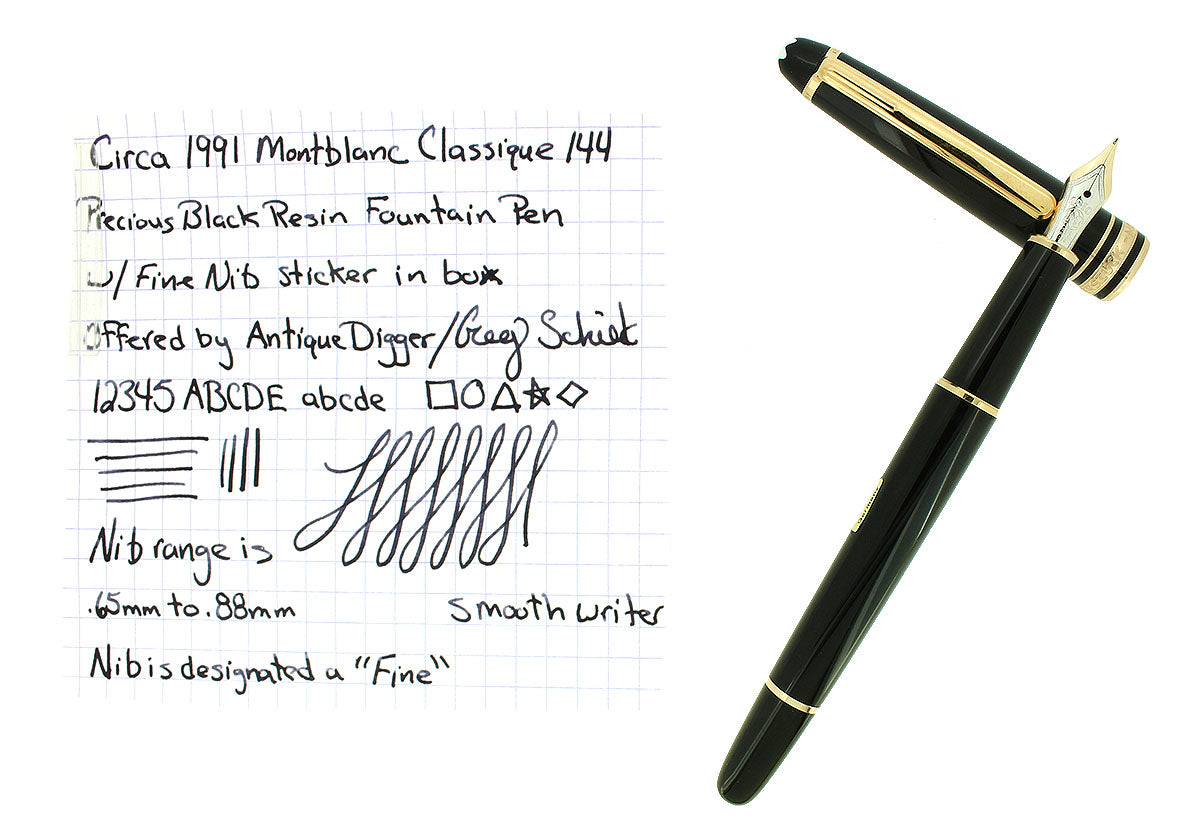 Circa 1991 Montblanc Classique 144
Precious Black Resin Fountain Pen
w/ Fine Nib sticker in box
Offered by Antique Digger/Greg
12345 ABCDE abcde
Nib range is
.65mm to .88mm
smooth writer
Nib is designated a "Fine"